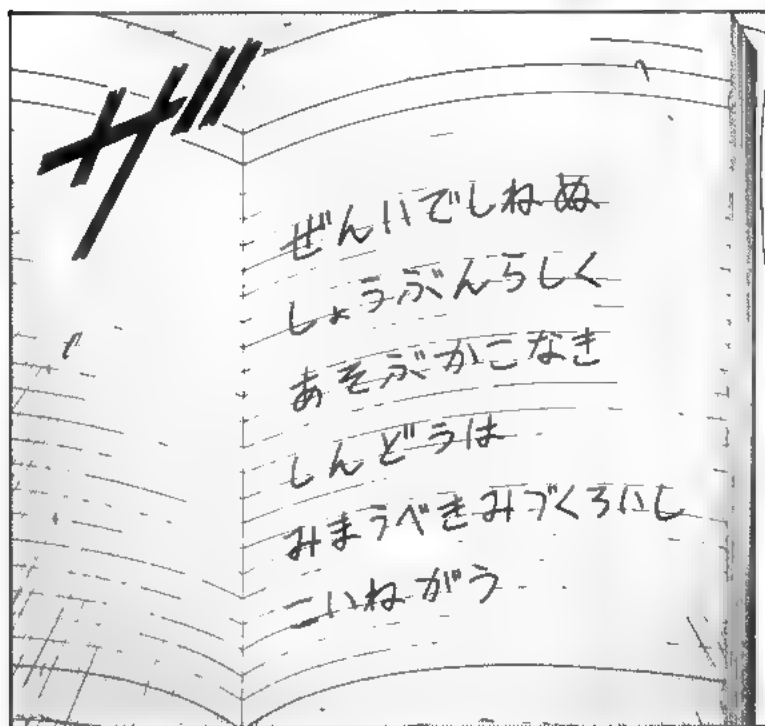 ザッ
ぜんいでしねぬ
しょうぶんらしく
あそぶかこなき
しんどうは
みまうべきみづくろいし
こいねがう